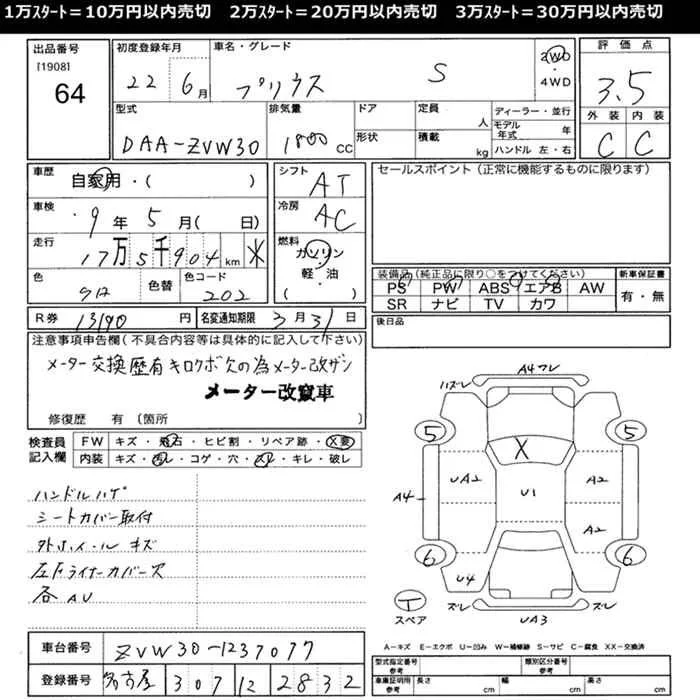 1万ｽﾀｰﾄ＝10万円以内売切　2万ｽﾀｰﾄ＝20万円以内売切　3万ｽﾀｰﾄ＝30万円以内売切
出品番号
[1908]
64
初度登録年月
22 6月
車名・グレード
プリウス S
2WD
4WD
評価点
3.5
外装 内装
C C
型式
DAA-ZVW30
排気量
1800 CC
ドア
形状
定員 人
積載 kg
ディーラー・並行
モデル年式 年
ハンドル 左・右
車歴
自家用・( )
シフト
AT
セールスポイント（正常に機能するものに限ります）
車検
9年5月( 日)
冷房
AC
走行
17万5千904km
燃料
ガソリン
軽・油
( )
色
色替
色コード
202
装備品（純品に限り○をつけてください）
PS PW ABS エアB AW
SR ナビ TV カワ
新車保証書
有・無
R券 13190円
名変通知期限 3月31日
後日品
注意事項申告欄（不具合内容等は具体的に記入して下さい）
メーター交換歴有キロクボ欠の為メーター改ザン
メーター改竄車
修復歴 有（箇所 ）
検査員記入欄
FW キズ・飛石・ヒビ割・リペア跡・X要
内装 キズ・汚レ・コゲ・穴・スレ・キレ・破レ
ハンドルハゲ
シートカバー取付
外ホイール キズ
左Fライナーカバー欠
各AU
A4 フレ
ハズレ
5 5
X
UA2 U1 A2
A4
A2
6 6
U4
ズレ ズレ
UA3
T
スペア
A－キズ E－エクボ U－凹み W－補修跡 S－サビ C－腐食 XX－交換済
車台番号 ZVW30-1237077
登録番号 名古屋 307 12 2832
型式指定番号 参考
類別区分番号 参考
車庫証明用 参考
長さ cm 幅 cm 高さ cm